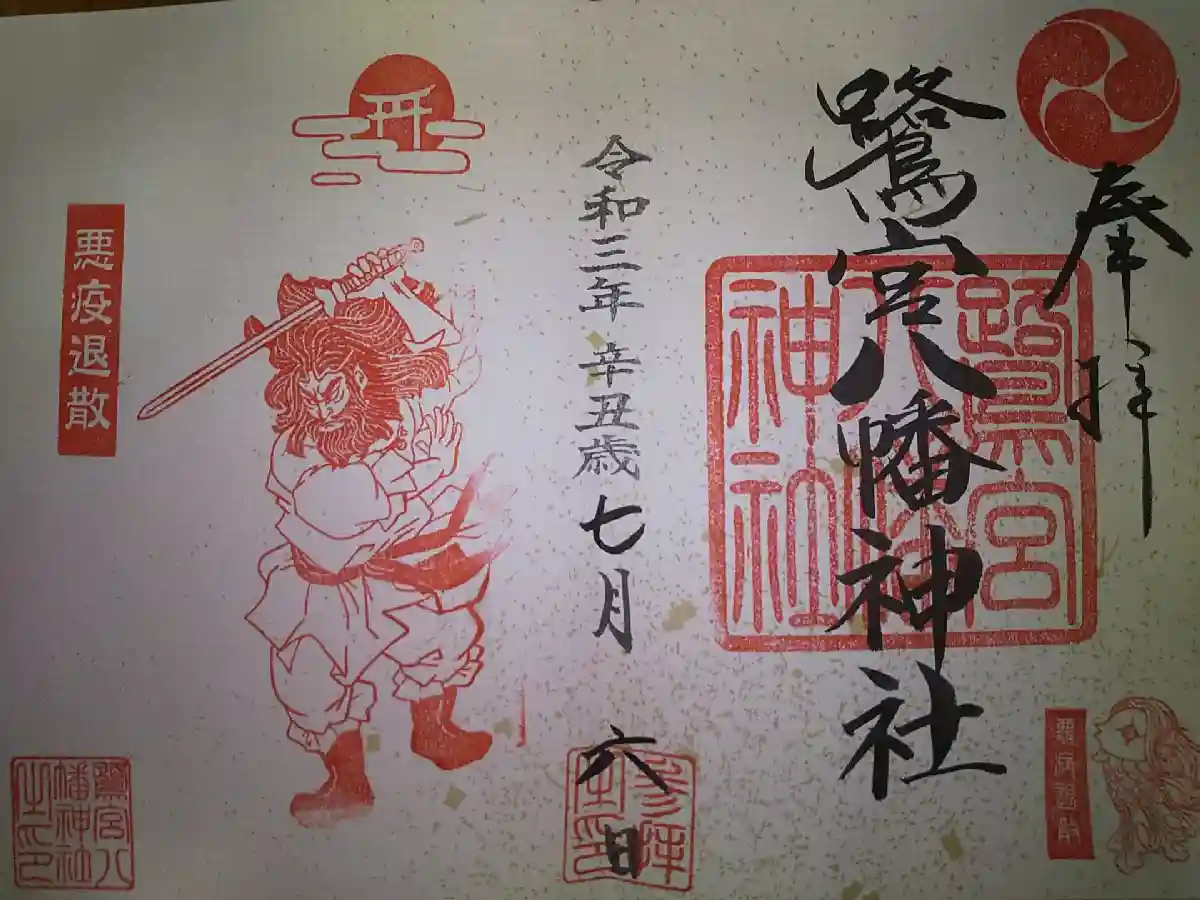 奉拝
鷺宮八幡神社
鷺宮
八幡
神社
令和三年 辛丑歳 七月 六日
参拝
之印
悪疫退散
鷺宮八
幡神社
之印